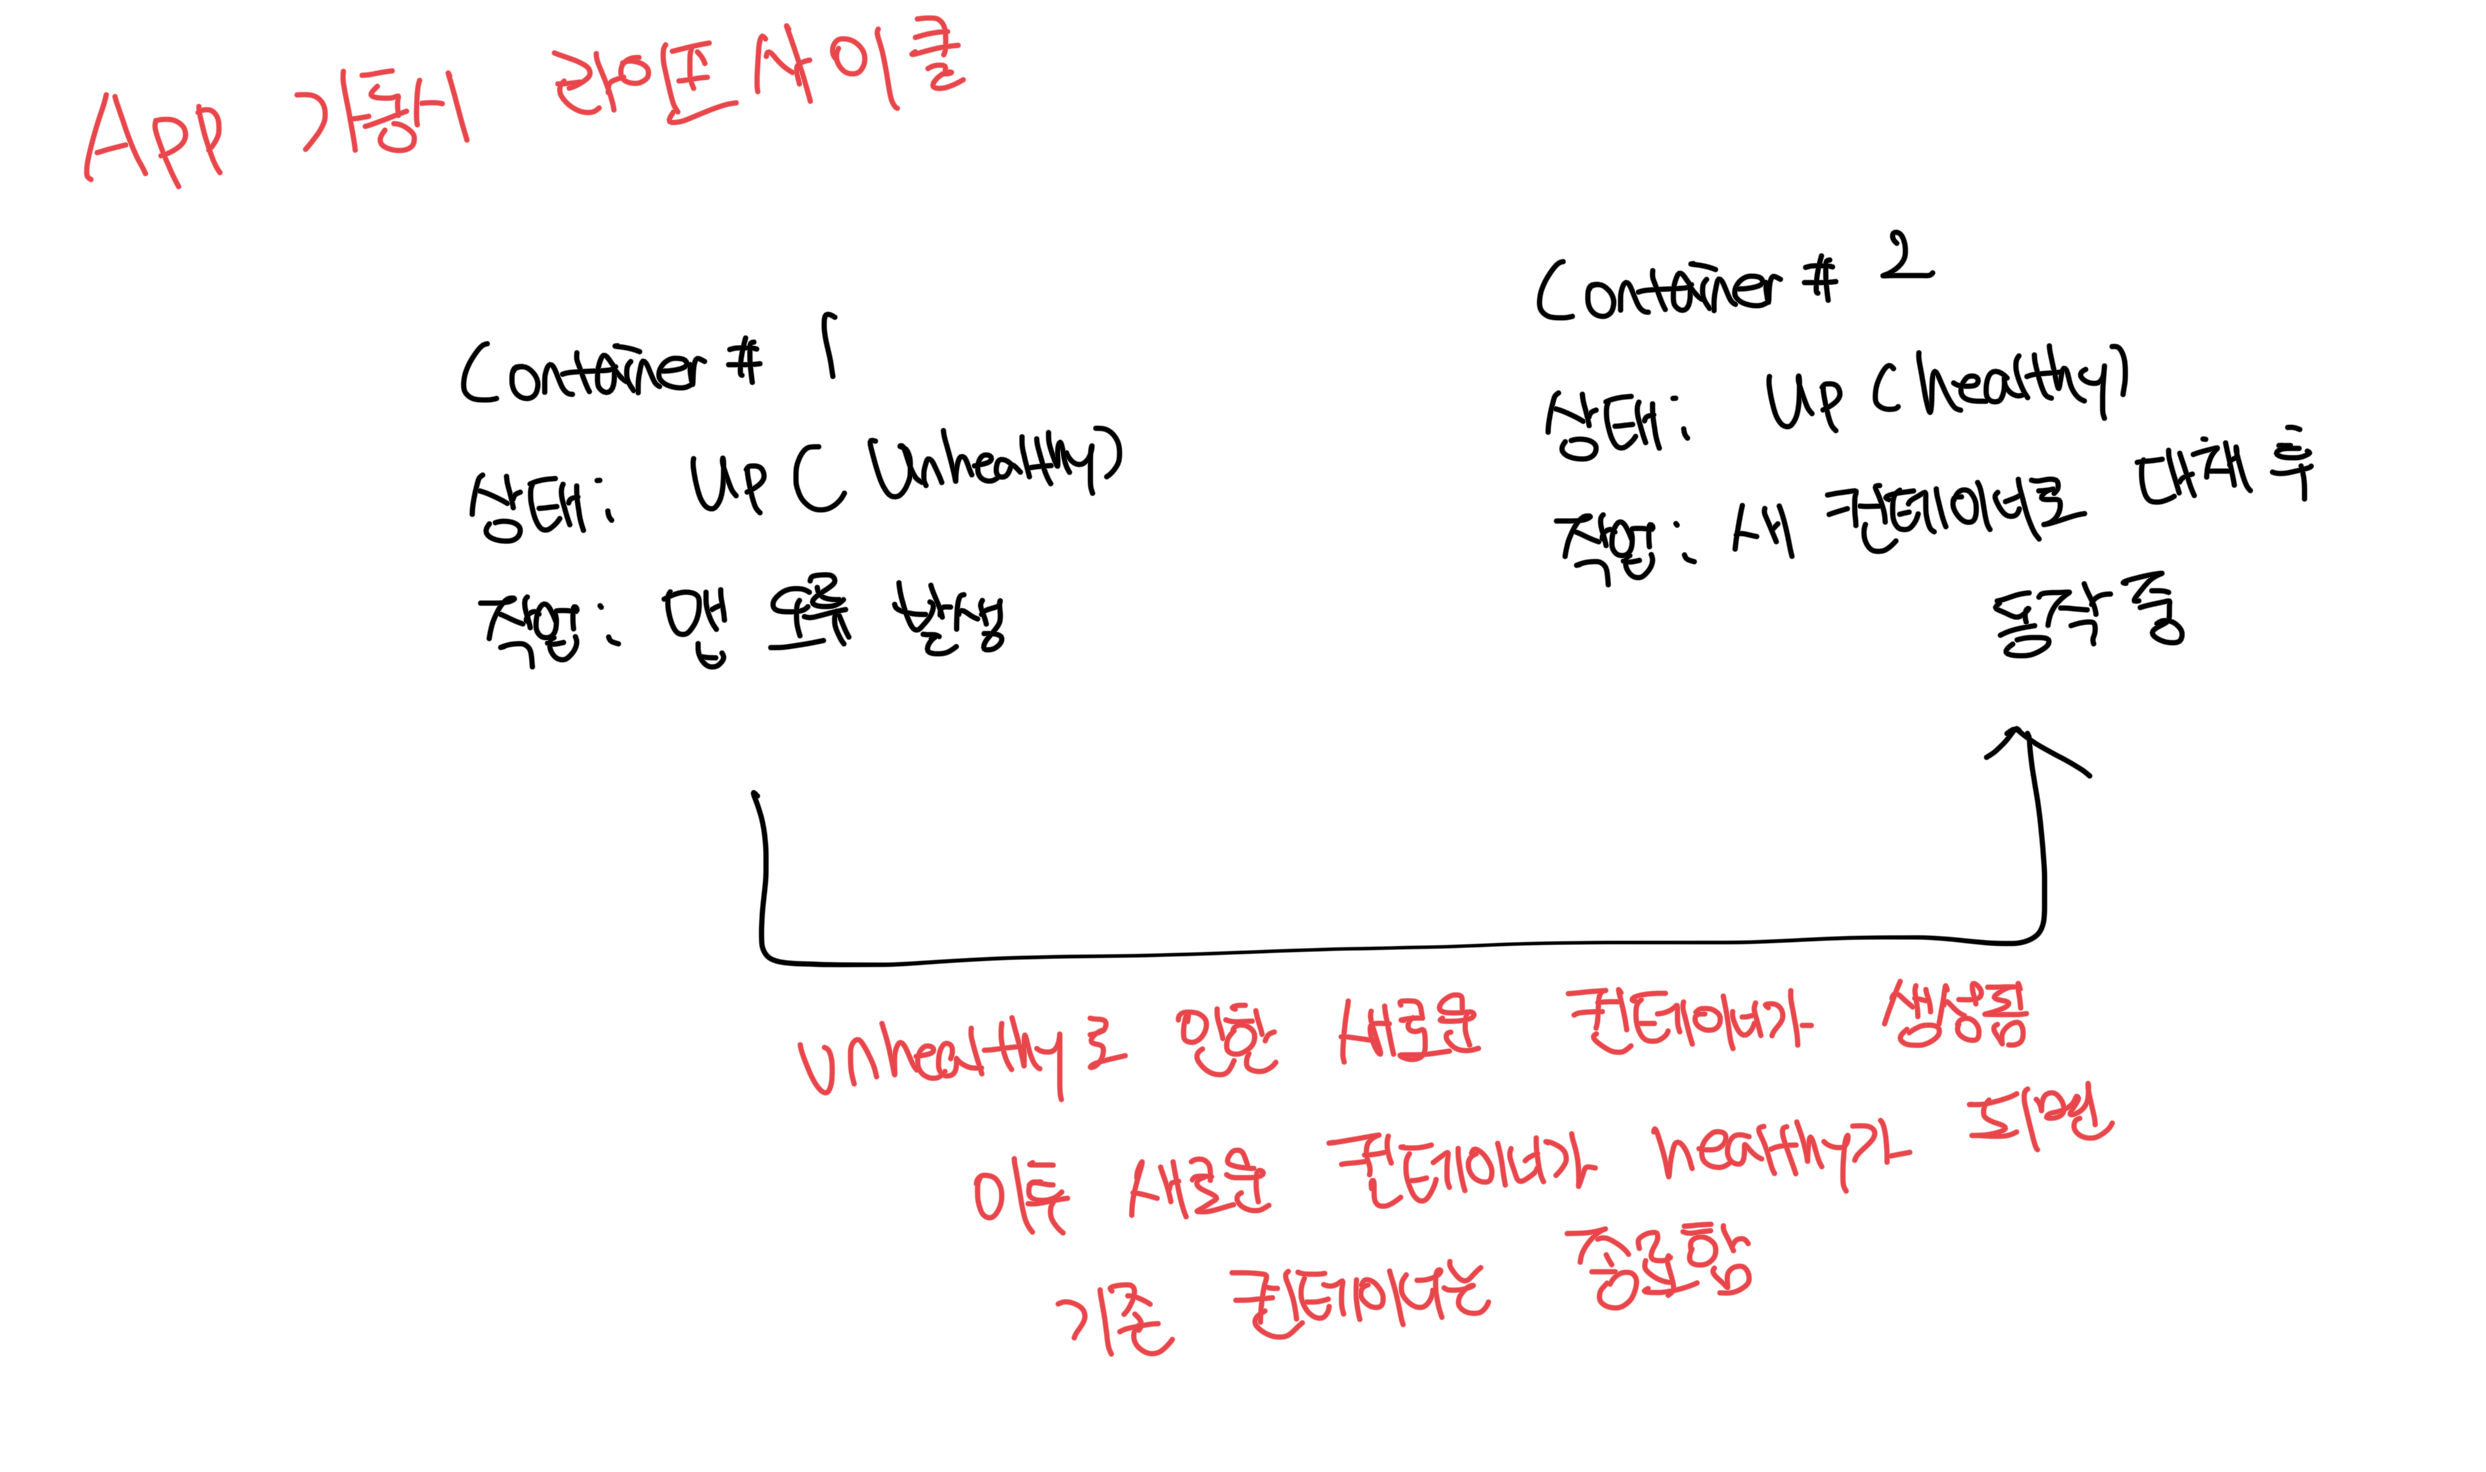 App 가동시 라이프사이클
Container # 1
상태: UP (Unhealthy)
작업: 앱 오류 발생
Container # 2
상태: UP (healthy)
작업: 새 컨테이너로 대체 후
동작중
Unhealthy로 인한 새로운 컨테이너가 생성됨
이후 새로운 컨테이너가 healthy가 되면
기존 컨테이너는 종료함